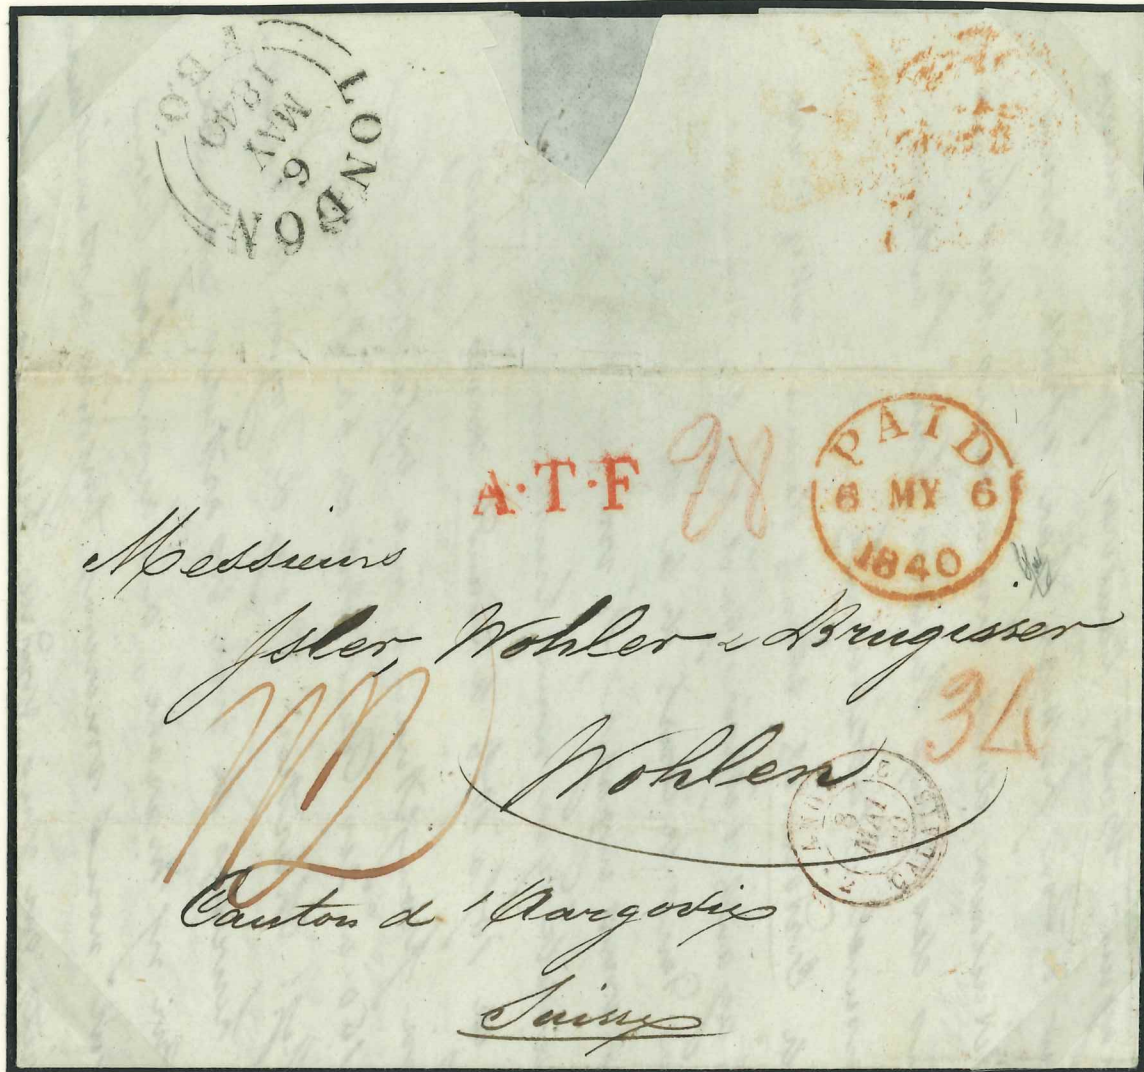 LONDON
MAY
6
1840
A·T·F 28
PAID
6 MY 6
1840
Messieurs
Isler, Wohler & Brugisser
34
Wohlen
8
MAI
CALAIS
Canton d'Aargovie
Suisse